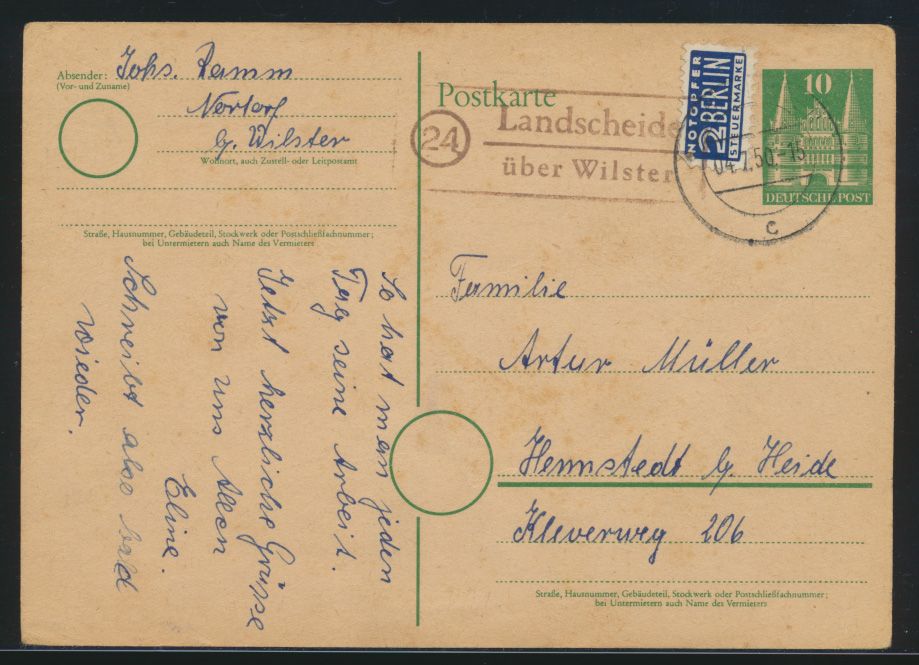 Absender: Johs. Ramm
(Vor- und Zuname)
Nortorf
b/ Wilster
Wohnort, auch Zustell- oder Leitpostamt
Straße, Hausnummer, Gebäudeteil, Stockwerk oder Postschließfachnummer;
bei Untermietern auch Name des Vermieters
So hat man jeden
Tag seine Arbeit.
Jetzt herzliche Grüsse
von uns Allen
Eline.
Schreibt also bald
wieder.
Postkarte
24
Landscheide
über Wilster
NOTOPFER
2 BERLIN
STEUERMARKE
10
DEUTSCHE POST
50.-
c
Familie
Artur Müller
Hennstedt b/ Heide
Kleverweg 206
Straße, Hausnummer, Gebäudeteil, Stockwerk oder Postschließfachnummer;
bei Untermietern auch Name des Vermieters